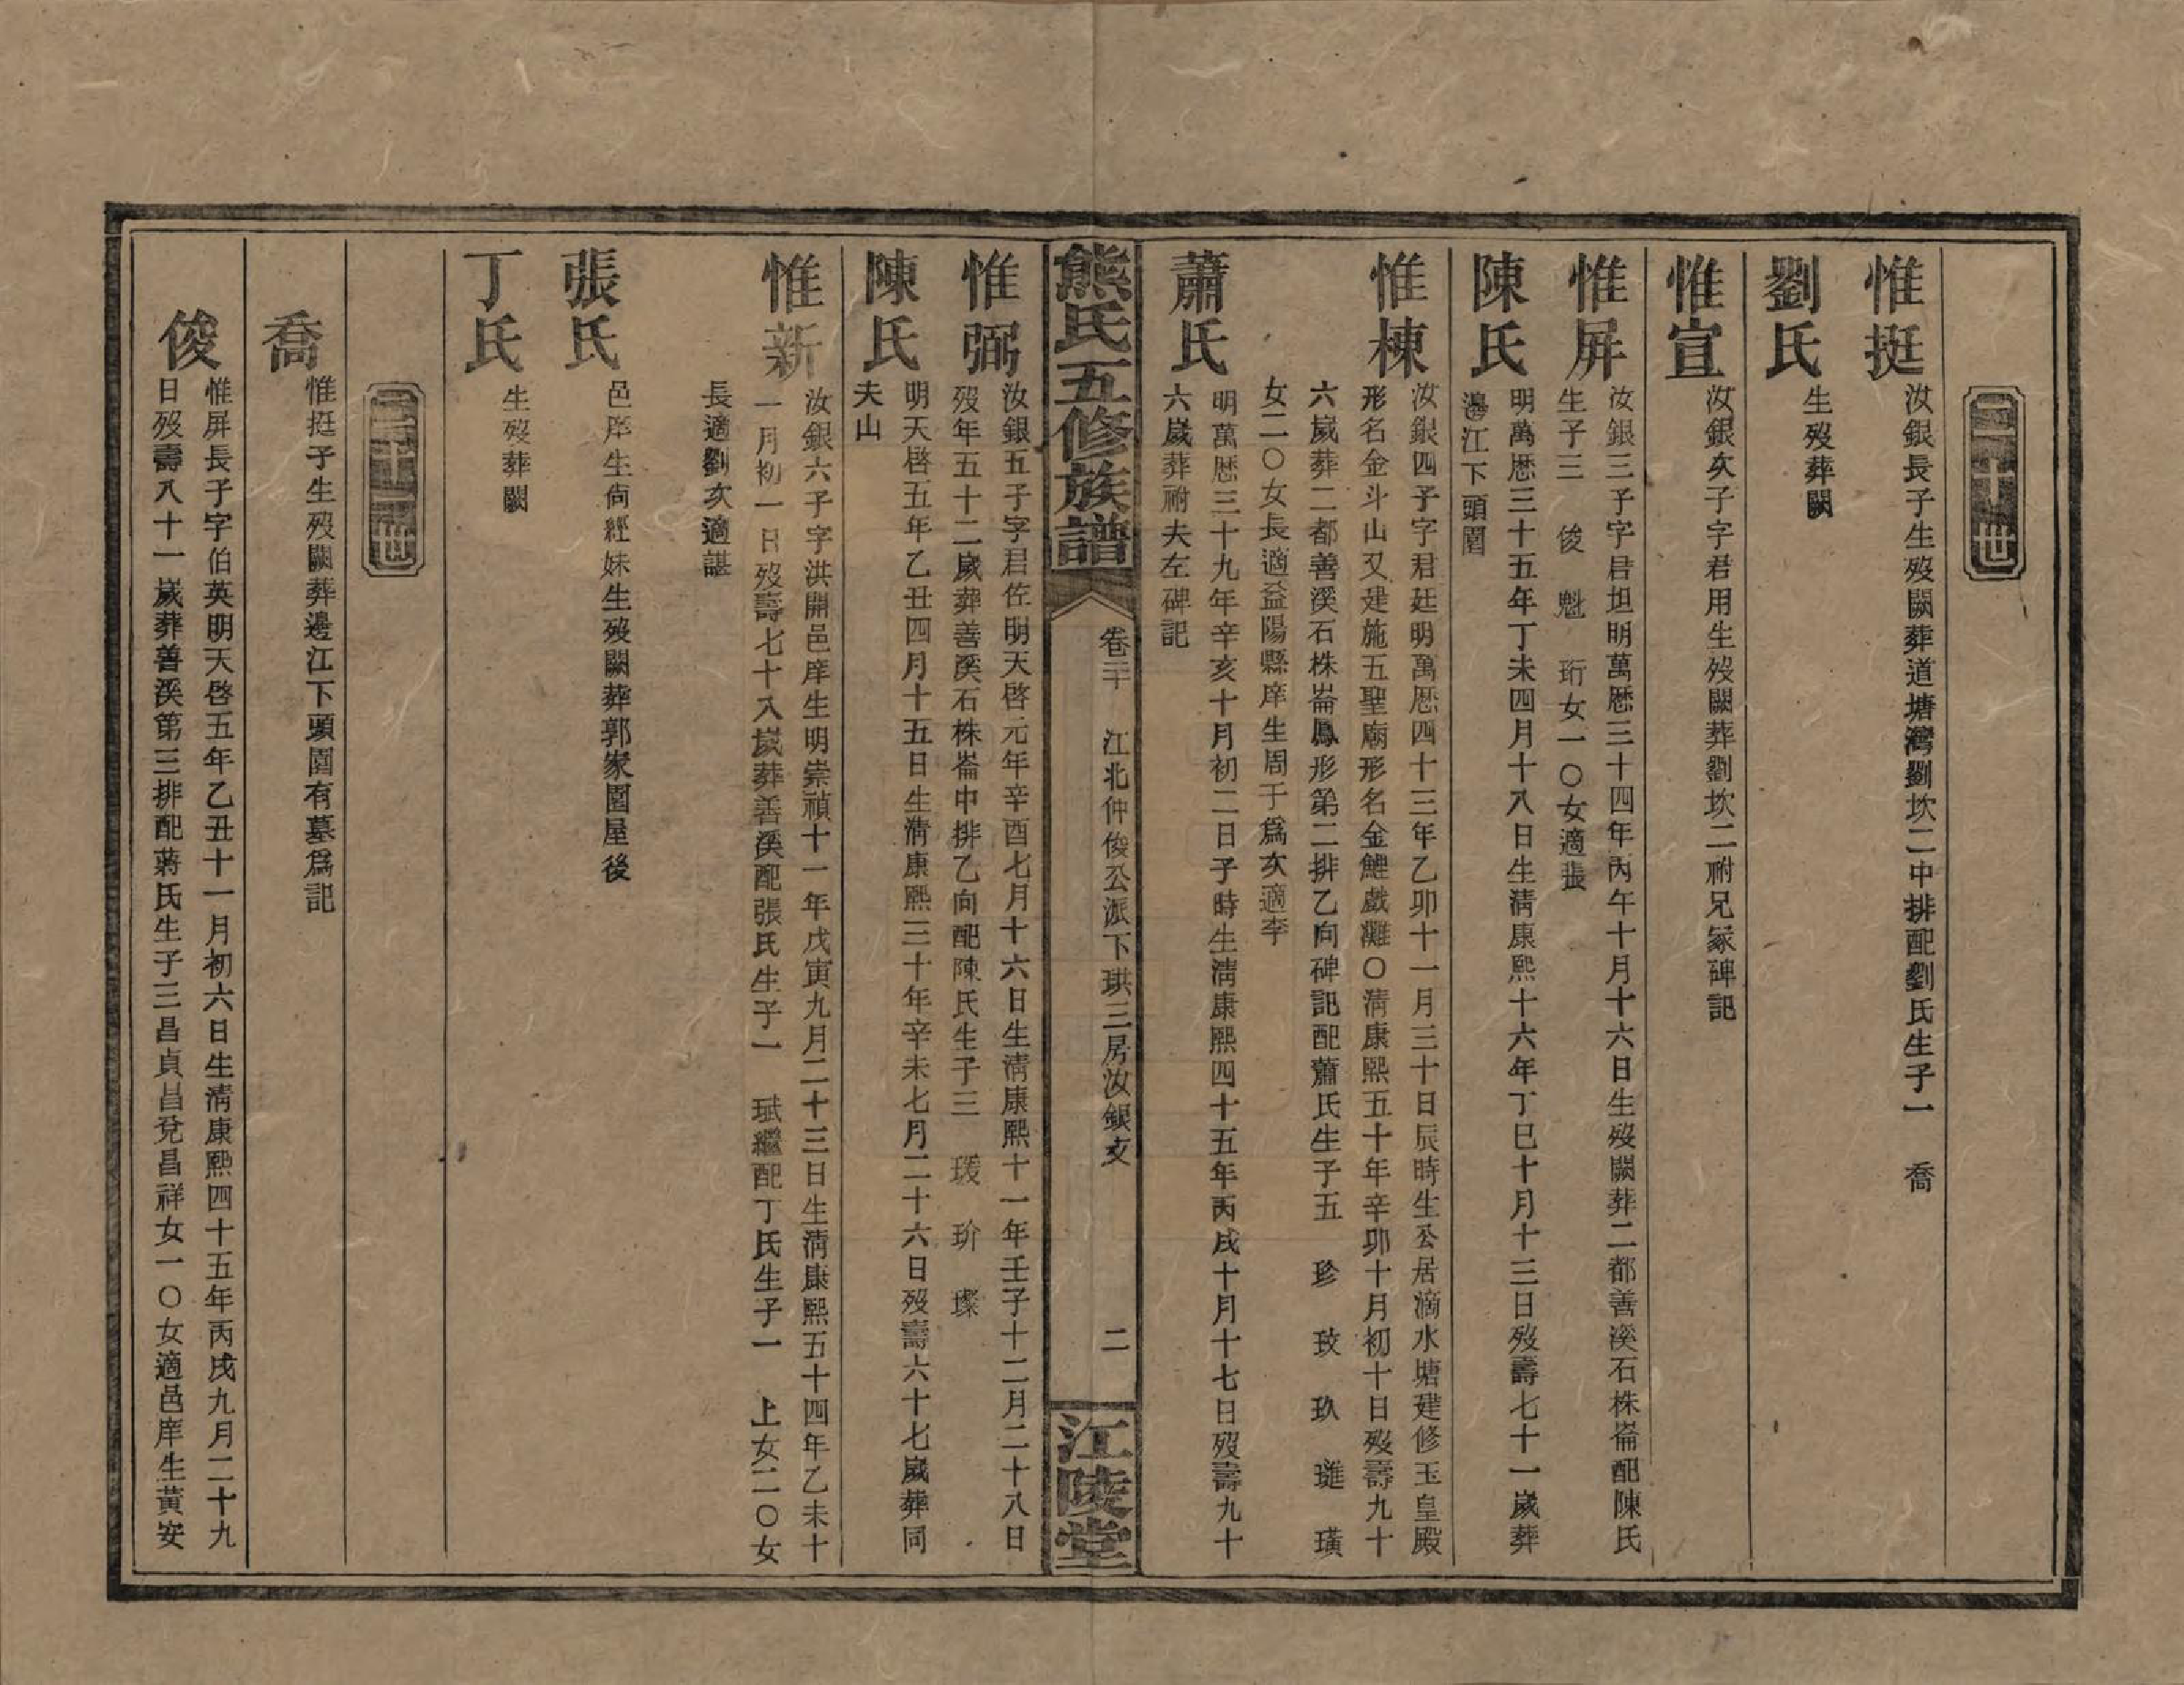 二十世
惟挺
汝銀長子生歿闕葬道塘灣劉坎二中排配劉氏生子一　喬
劉氏
生歿葬闕
惟宣
汝銀次子字君用生歿闕葬劉坎二祔兄冢碑記
惟屏
汝銀三子字君坦明萬歷三十四年丙午十月十六日生歿闕葬二都善溪石株崙配陳氏
生子三　俊　魁　珩女一〇女適張
陳氏
明萬歷三十五年丁未四月十八日生清康熙十六年丁巳十月十三日歿壽七十一歲葬
邊江下頭園
惟棟
汝銀四子字君廷明萬歷四十三年乙卯十一月三十日辰時生公居滴水塘建修玉皇殿
形名金斗山又建施五聖廟形名金鯉戲灘〇清康熙五十年辛卯十月初十日歿壽九十
六歲葬二都善溪石株崙鳳形第二排乙向碑記配蕭氏生子五　珍　玫　玖　璡　璜
女二〇女長適益陽縣庠生周于爲次適李
蕭氏
明萬歷三十九年辛亥十月初二日子時生清康熙四十五年丙戌十月十七日歿壽九十
六歲葬祔夫左碑記
熊氏五修族譜
卷二十　江北仲俊公派下珙三房汝銀支　二
江陵堂
惟弼
汝銀五子字君佐明天啓元年辛酉七月十六日生清康熙十一年壬子十二月二十八日
歿年五十二歲葬善溪石株崙中排乙向配陳氏生子三　瑗　玠　璨
陳氏
明天啓五年乙丑四月十五日生清康熙三十年辛未七月二十六日歿壽六十七歲葬同
夫山
惟新
汝銀六子字洪開邑庠生明崇禎十一年戊寅九月二十三日生清康熙五十四年乙未十
一月初一日歿壽七十八歲葬善溪配張氏生子一　珷繼配丁氏生子一　上女二〇女
長適劉次適諶
張氏
邑庠生尙經妹生歿闕葬郭家園屋後
丁氏
生歿葬闕
二十一世
喬
惟挺子生歿闕葬邊江下頭園有墓爲記
俊
惟屏長子字伯英明天啓五年乙丑十一月初六日生清康熙四十五年丙戌九月二十九
日歿壽八十一歲葬善溪第三排配蔣氏生子三昌貞昌兌昌祥女一〇女適邑庠生黃安